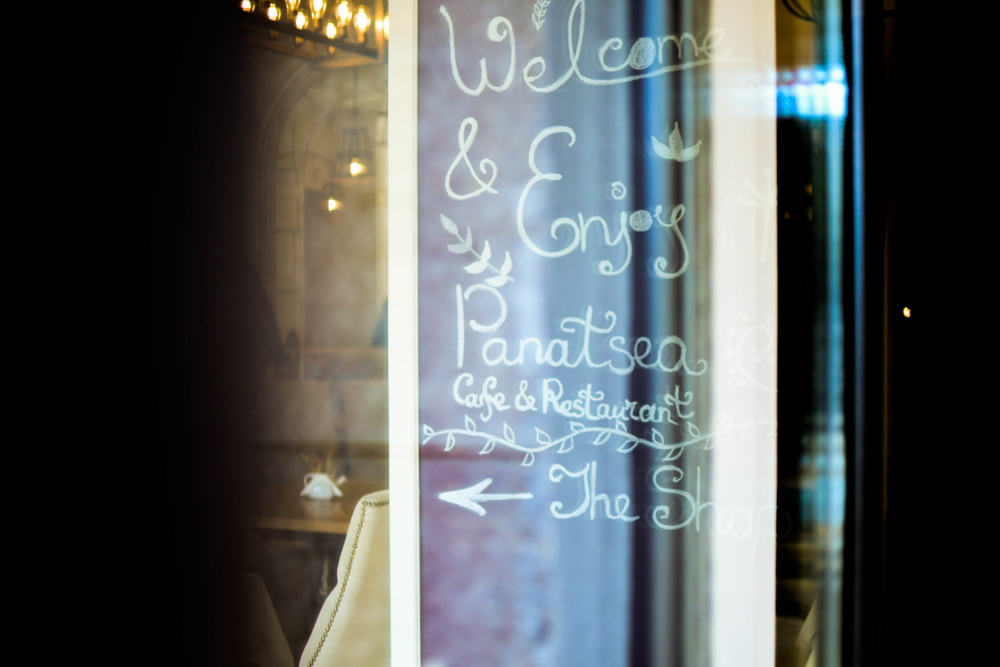 Welcome
& Enjoy
Panatsea
Cafe & Restaurant
The Shop